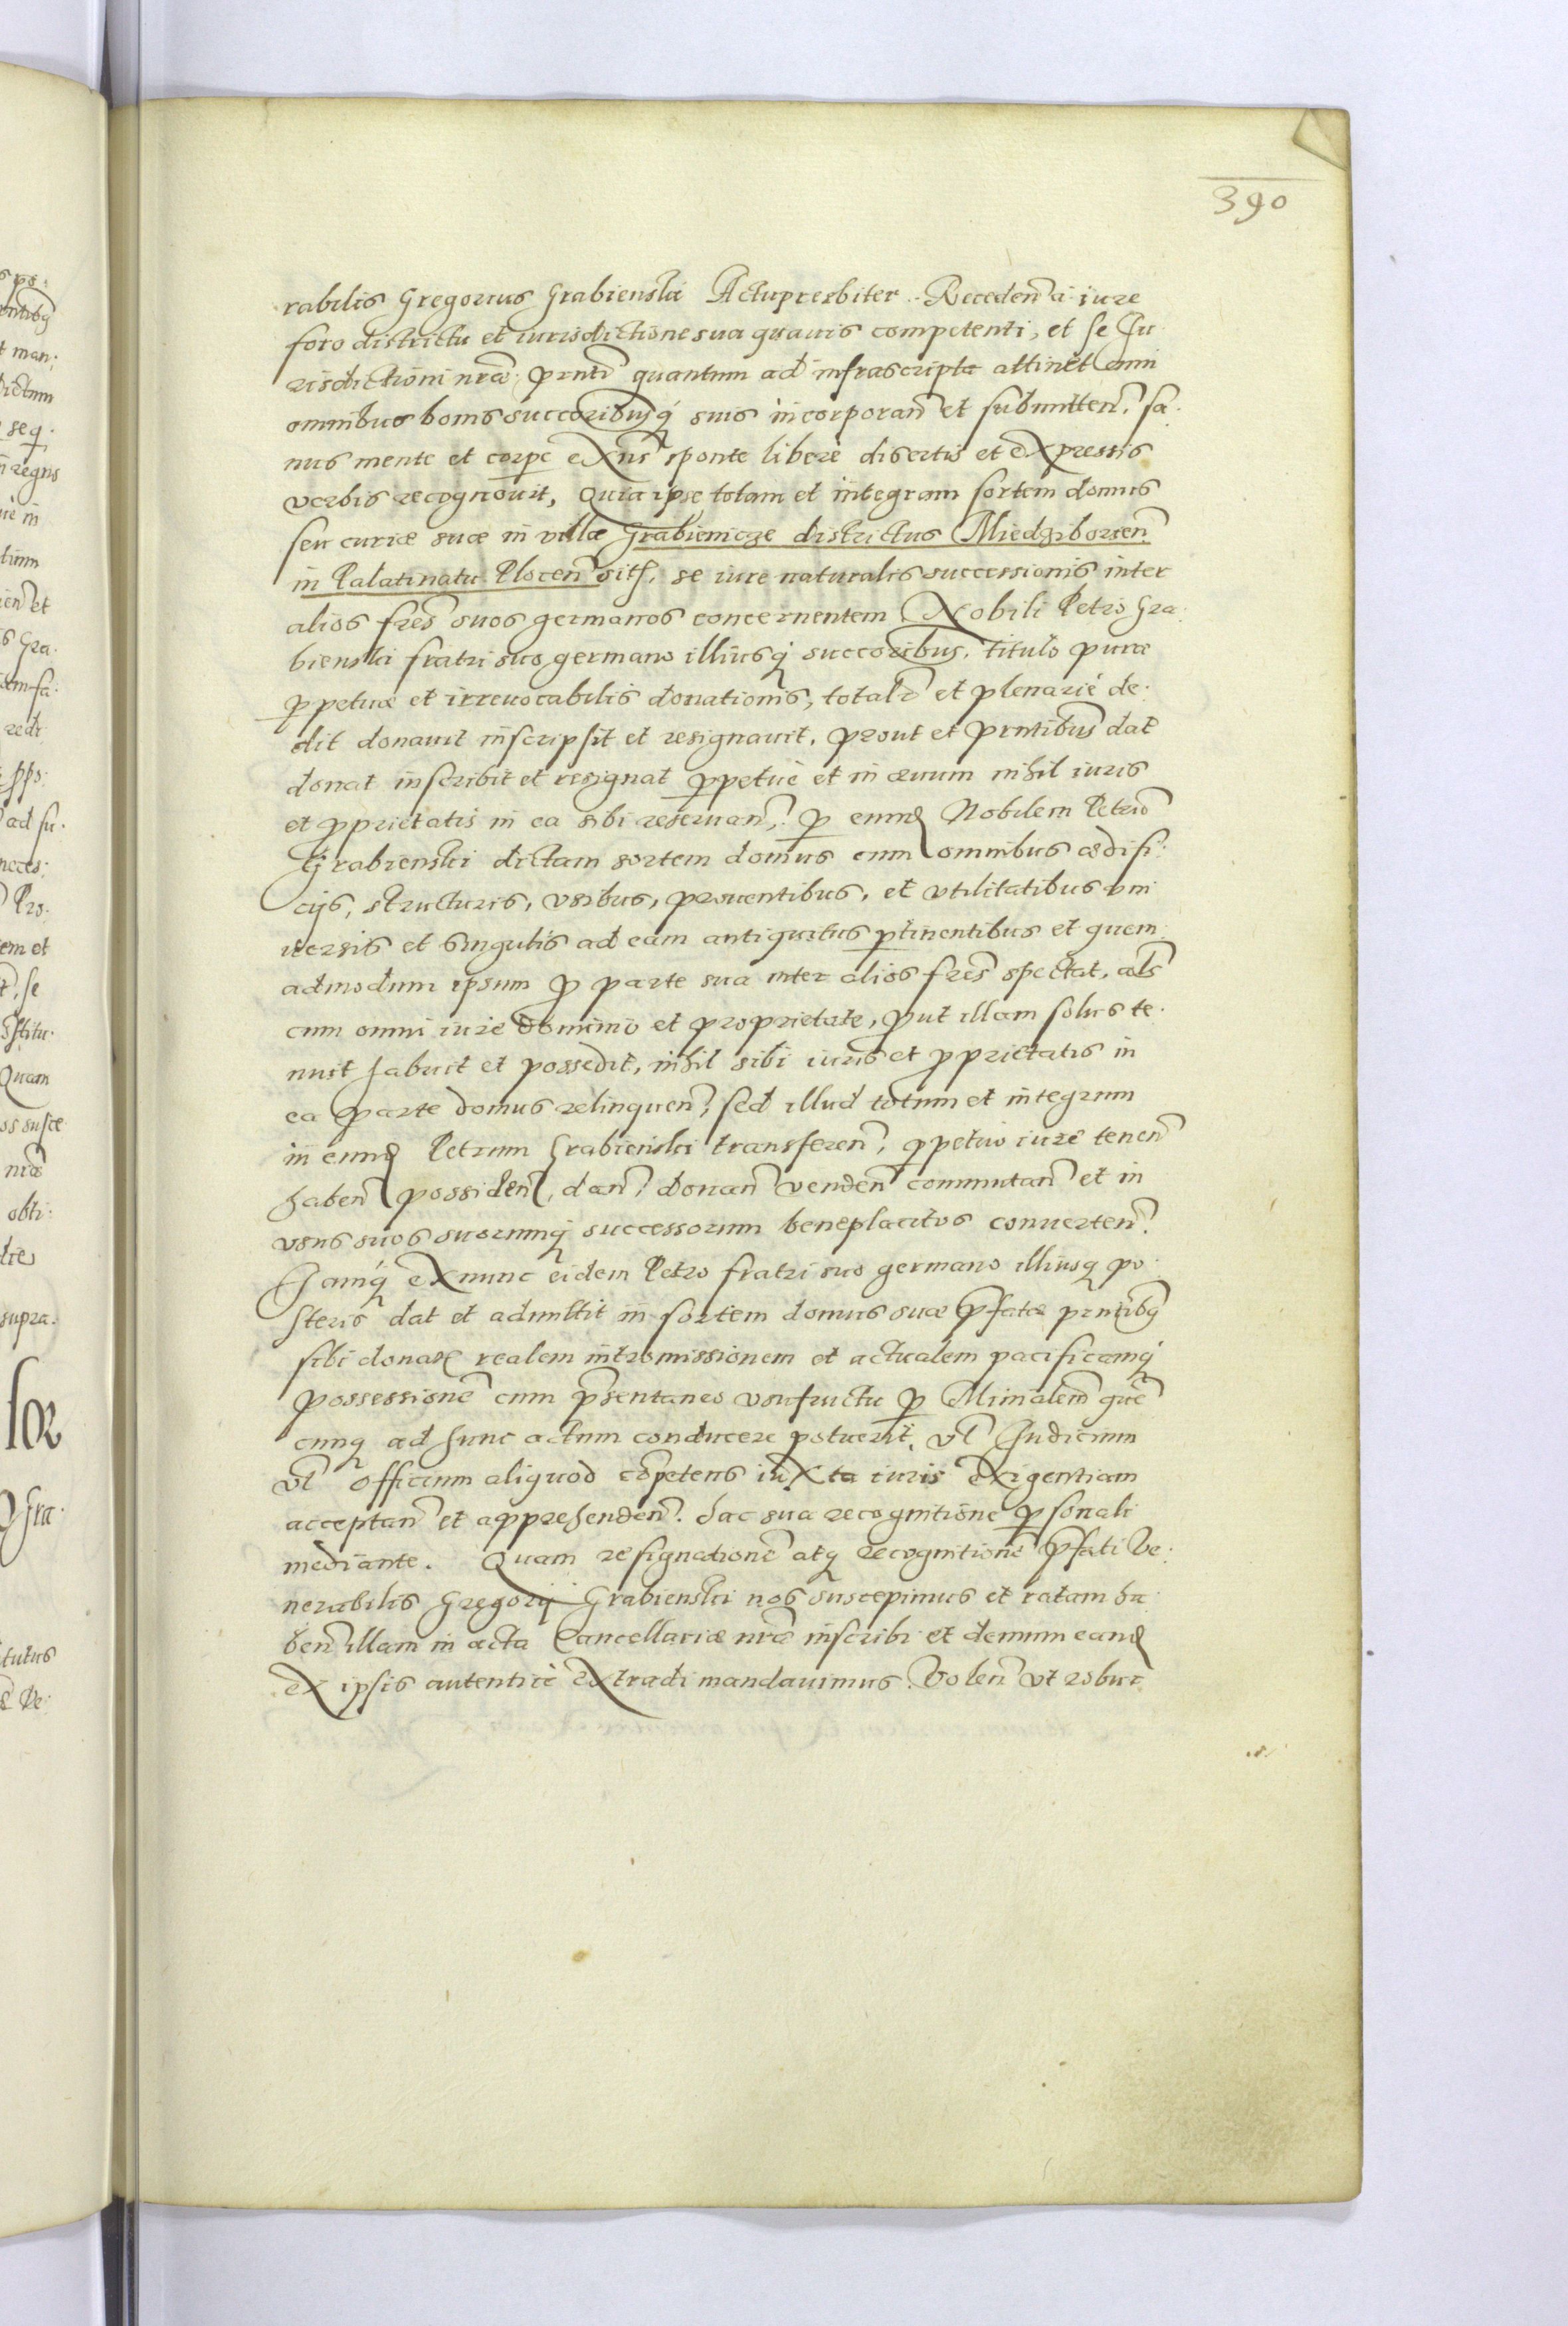 390
rabilis Gregorius Grabienski Actupresbiter. Receden̄ a iure
foro districtu et iurisdictione sua quauis competenti, et se Iu
risdictioni nr̄æ prnti quantum ad infrascripta attinet cum
omnibus bonis succoribusq́ suis incorporan̄ et submitten̄, sa:
nus mente et corpe exn̄s sponte libere disertis et expressis
verbis recognouit, Quia ipse totam et integram sortem domus
seu curiæ suæ in villa Grabienicze districtus Miedziborien̄
in Palatinatu Plocen̄ sit, se iure naturalis successionis inter
alios fr̄es suos germanos concernentem Nobili Petro Gra:
bienski fratri suo germano illiusq́ succoribus, titulo puræ
ꝑpetuæ et irreuocabilis donationis, total̄r et plenarie de:
dit donauit inscripsit et resignauit, prout et prntibus dat
donat inscribit et resignat ꝑpetuè et in æuum nihil iuris
et ꝓprietatis in ea sibi reseruan̄, ꝑ eund Nobilem Petrum
Grabienski dictam sortem domus cum omnibus ædifi:
cijs, structuris, vsibus, prouentibus, et vtilitatibus vni
uersis et singulis ad eam antiquitus ꝑtinentibus et quem
admodum ipsum ꝓ parte sua inter alios fr̄es spectat, al̄s
cum omni iure dominio et proprietate, ꝓut illam solus te:
nuit habuit et possedit, nihil sibi iuris et ꝓprietatis in
ea parte domus relinquen̄, sed illud totum et integrum
in eund Petrum Grabienski transferen̄, ꝑpetuo iure tenen̄
haben possiden, dan̄, donan̄ venden̄ commutan̄ et in
vsus suos suorumq́ successorum beneplacitos conuerten̄.
Iamq́ ex nunc eidem Petro fratri suo germano illiusq́ po:
steris dat et admittit in sortem domus suæ p̄fatæ prntibq́
sibi donat realem intromissionem et actualem pacificamq́
possessionē cum p̄sentaneo vsufructu ꝑ Minialem quē
cunq́ ad hunc actum conducere potuerit, vl̄ Iudicium
vl̄ officium aliquod cōpetens iuxta iuris exigentiam
acceptan̄ et apprehenden̄. hac sua recognitione ꝑsonali
mediante. Quam resignationē atq́ recognitionē p̄fati Ve:
nerabilis Gregorij Grabienski nos suscepimus et ratam ha
ben̄ illam in acta Cancellariæ nr̄æ inscribi et demum eand
ex ipsis autenticè extradi mandauimus. Volen̄ vt robur